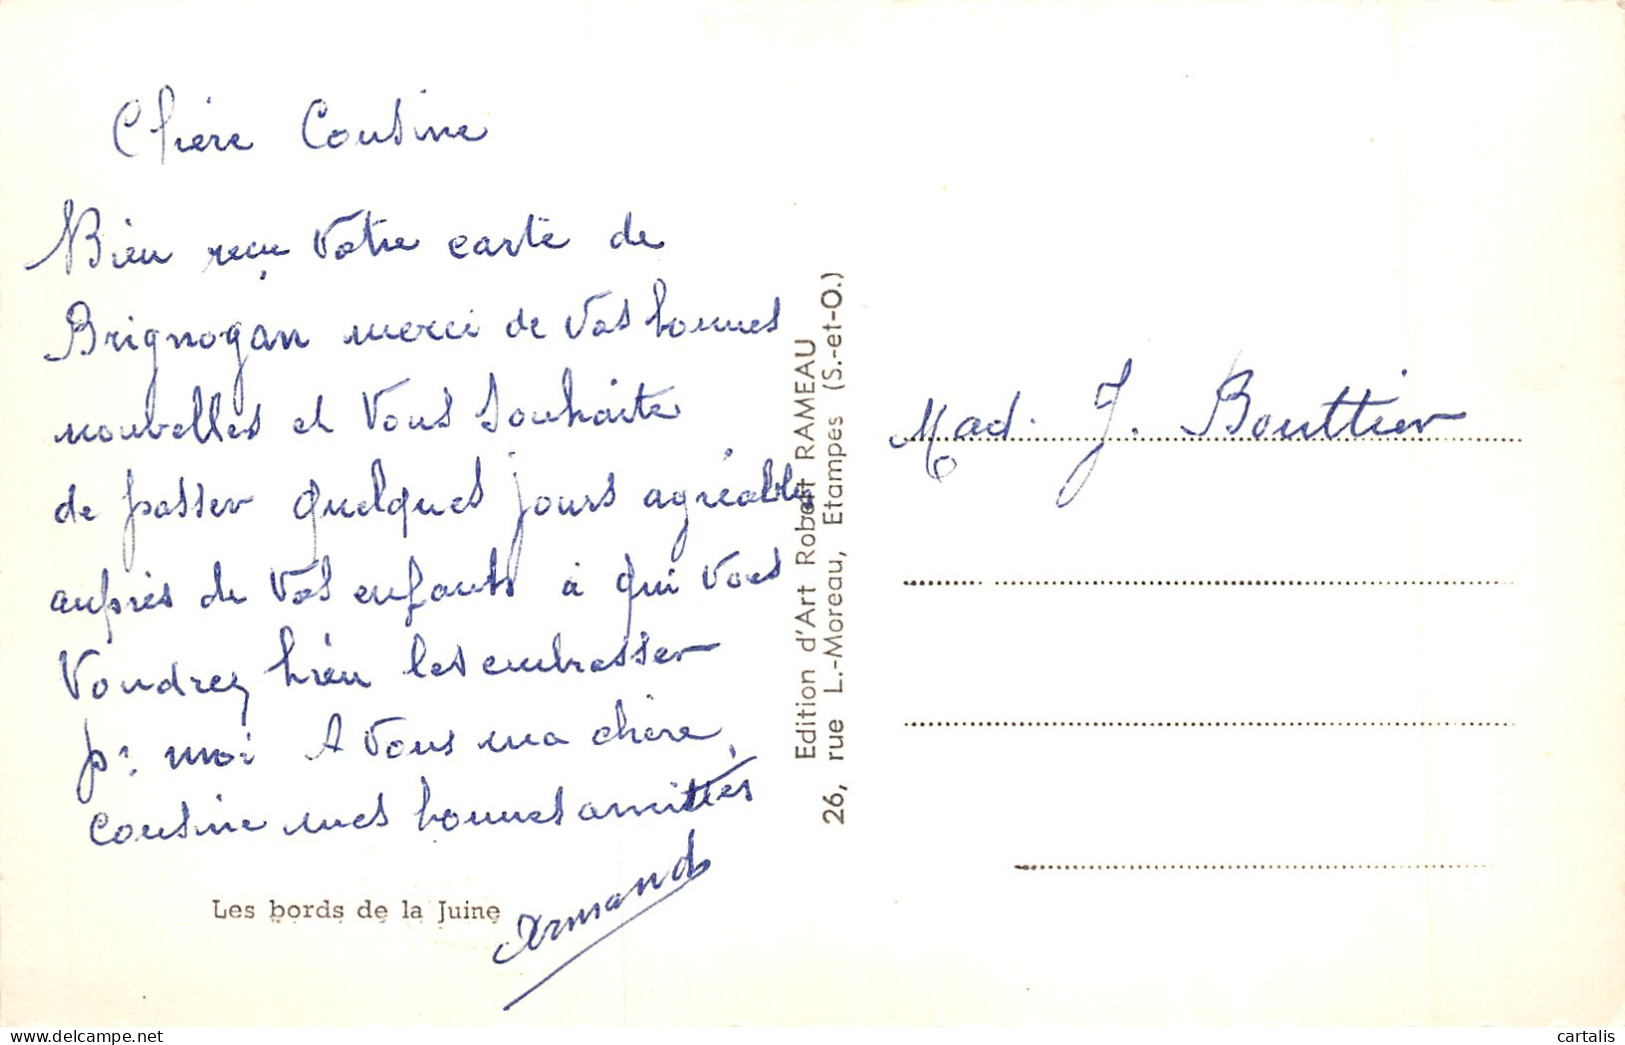 Chère Cousine
Bien reçu votre carte de
Brignogan merci de vos bonnes
nouvelles et vous souhaite
de passer quelques jours agréables
auprès de vos enfants à qui vous
voudrez bien les embrasser
pr moi A vous ma chère
cousine mes bonnes amitiés
Armand
Les bords de la Juine
Edition d'Art Robert RAMEAU
26, rue L.-Moreau, Etampes (S.-et-O.)
Mad. J. Bouttier
cartalis
www.delcampe.net